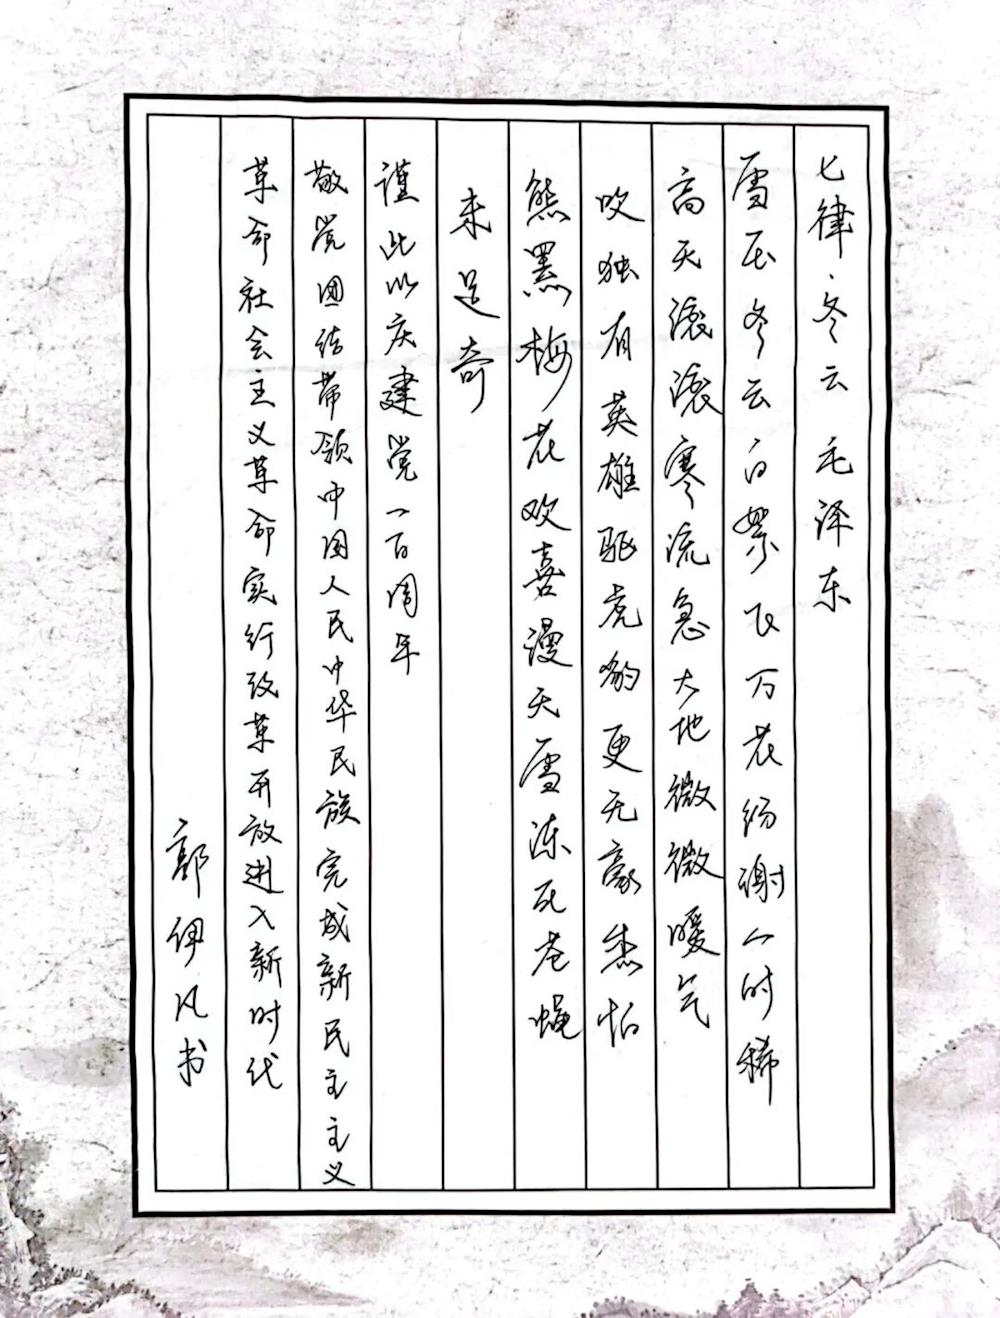 七律·冬云 毛泽东
雪压冬云白絮飞万花纷谢一时稀
高天滚滚寒流急大地微微暖气
吹独有英雄驱虎豹更无豪杰怕
熊罴梅花欢喜漫天雪冻死苍蝇
未足奇
谨此以庆建党一百周年
敬党团结带领中国人民中华民族完成新民主主义
革命社会主义革命实行改革开放进入新时代
郭伊凡书